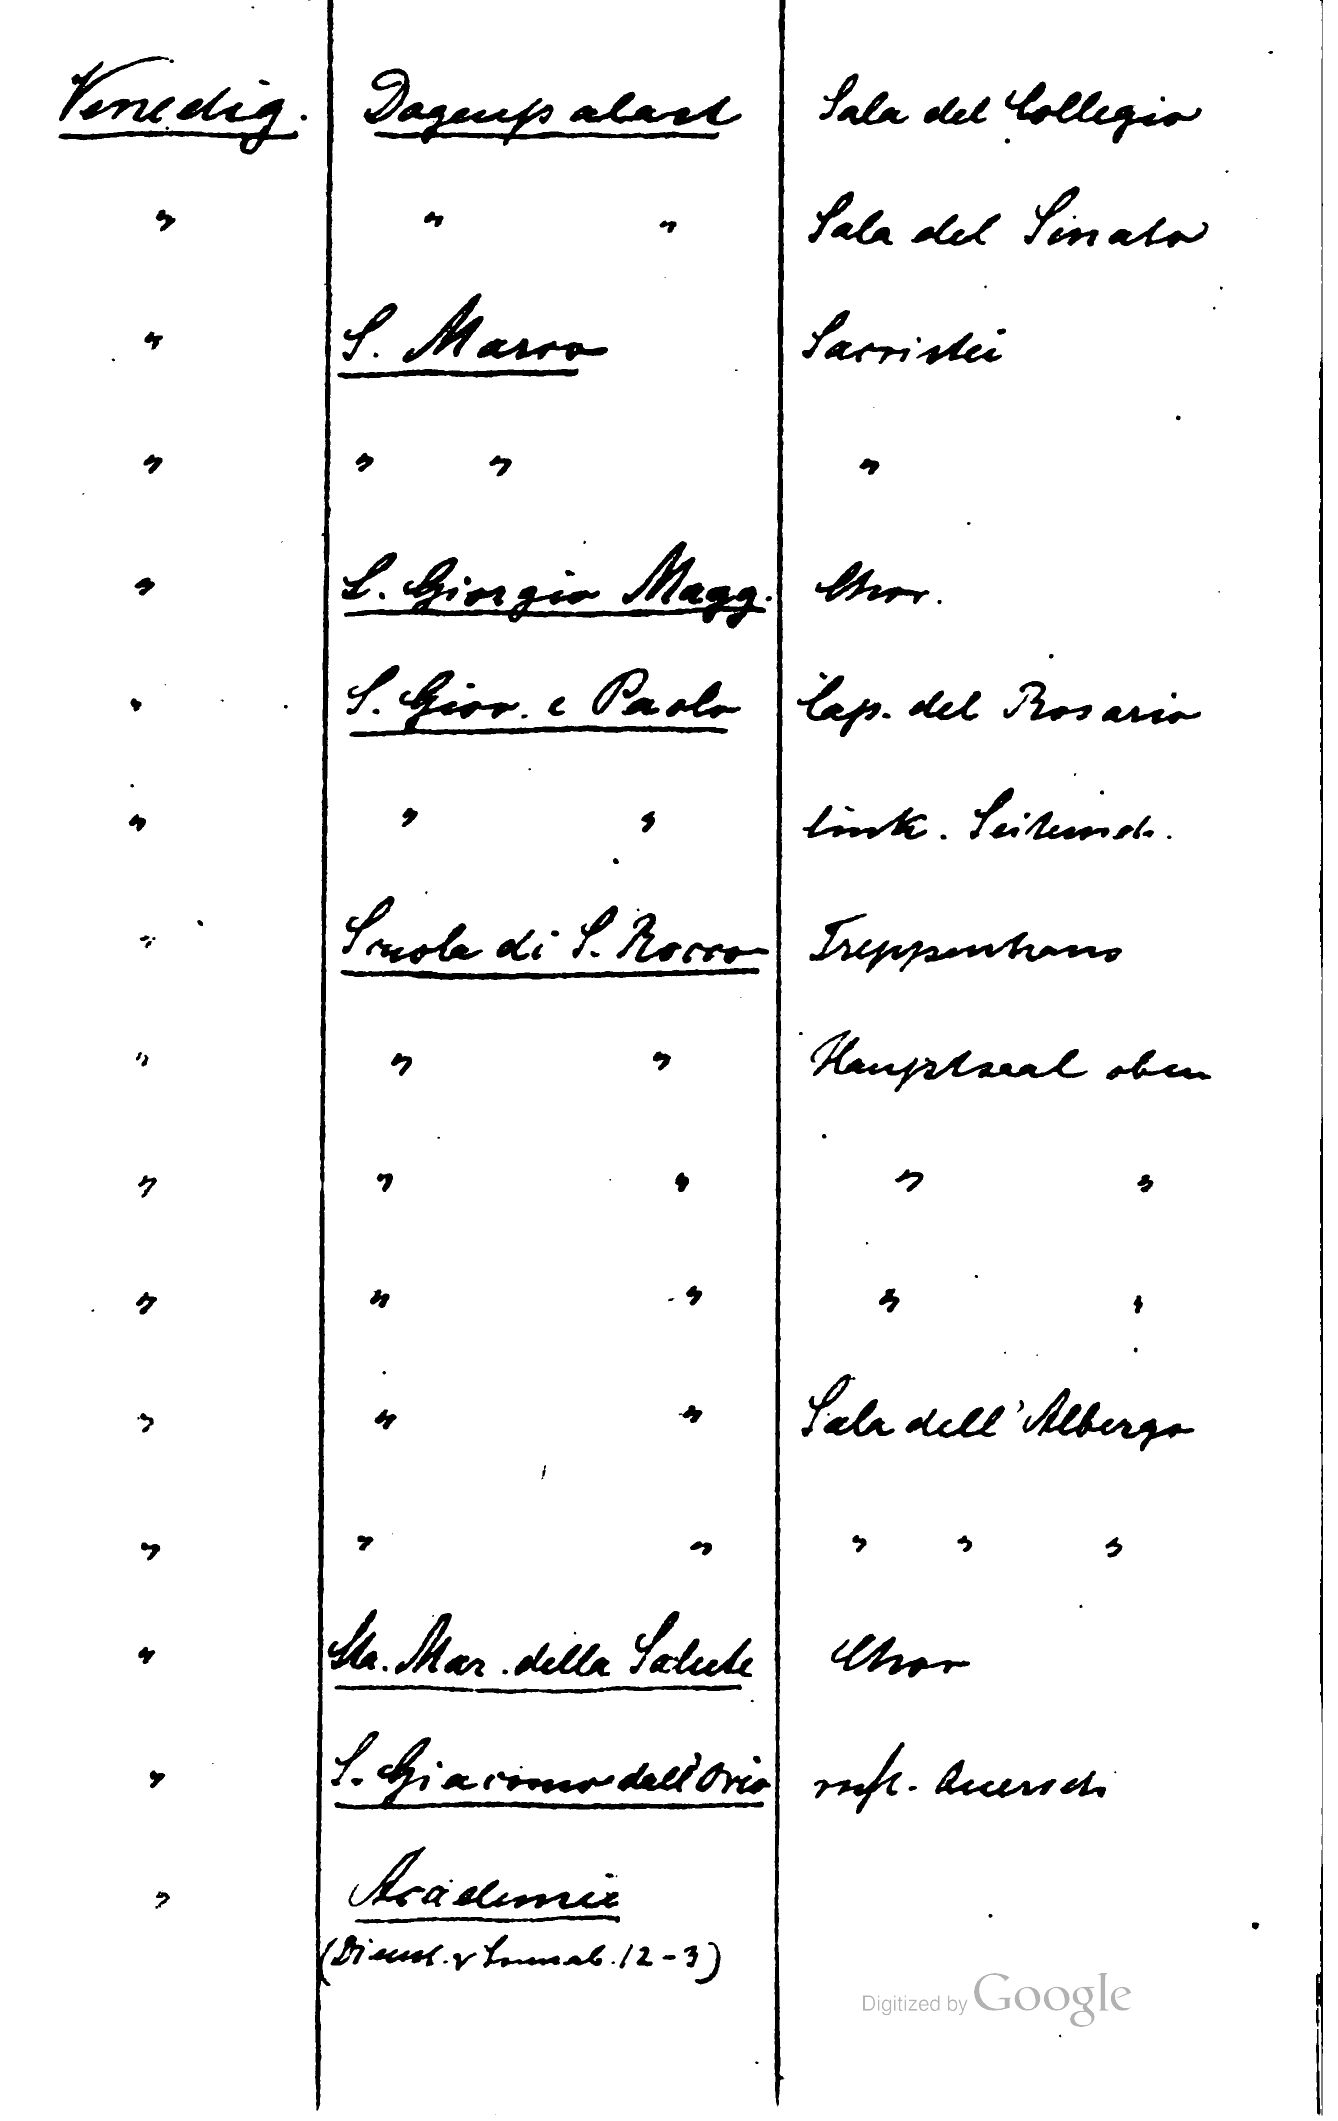 Venedig. Dogenpalast Sala del Collegio
" " " Sala del Senato
" S. Marco Sacristei
" " " "
" S. Giorgio Magg. Chor.
" S. Giov. e Paolo Cap. del Rosario
" " " link. Seitensch.
" Scuola di S. Rocco Treppenhaus
" " " Hauptsaal oben
" " " " "
" " " " "
" " " Sala dell'Albergo
" " " " " "
" Sta. Mar. della Salute Chor
" S. Giacomo dell'Orio Quersch.
" Academie
(Dienst. & Sonnab. 12-3)
Digitized by Google